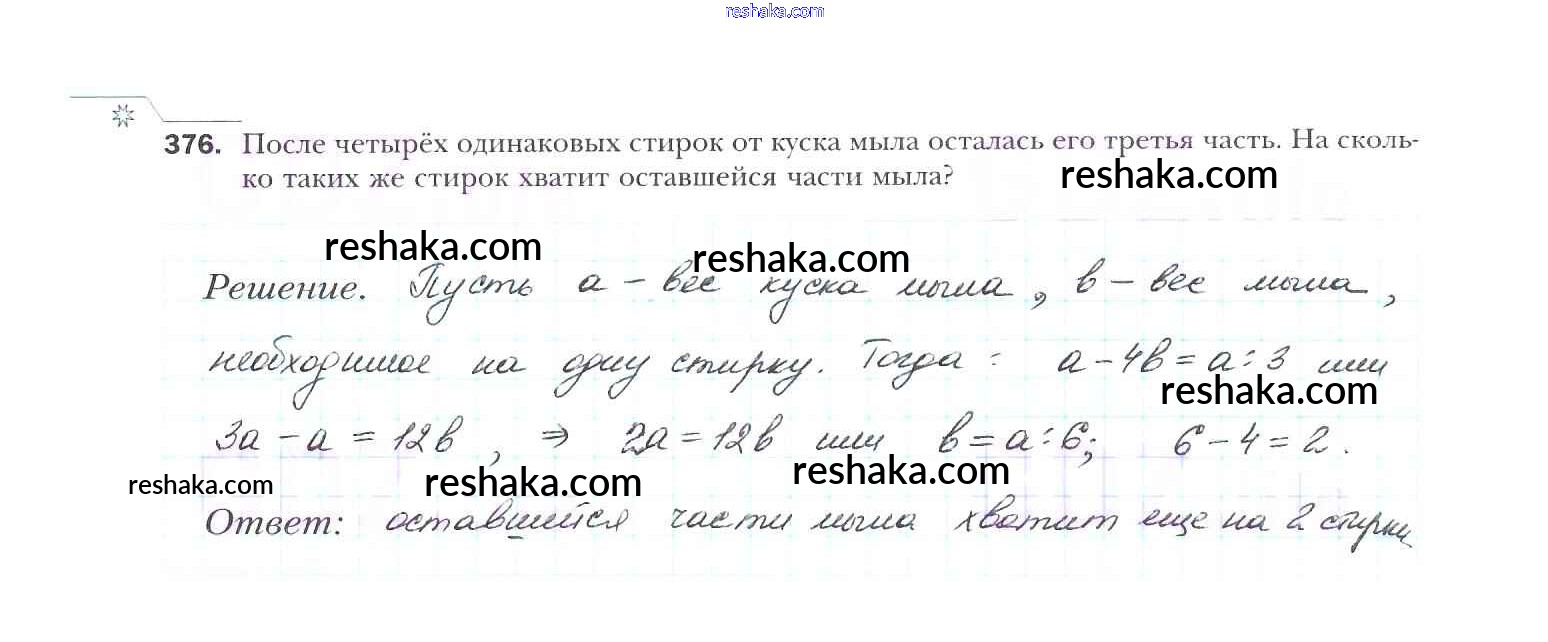 reshaka.com
376. После четырёх одинаковых стирок от куска мыла осталась его третья часть. На сколь-
ко таких же стирок хватит оставшейся части мыла?
reshaka.com
reshaka.com
reshaka.com
Решение. Пусть a – вес куска мыла, в – вес мыла,
необходимое на одну стирку. Тогда: a – 4в = a : 3 или
reshaka.com
3a – a = 12в, ⇒ 2a = 12в или в = a : 6; 6 – 4 = 2.
reshaka.com
reshaka.com
reshaka.com
Ответ: оставшейся части мыла хватит еще на 2 стирки